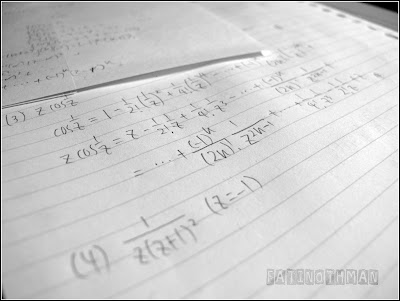 (3) z cos 1/z
cos 1/z = 1 - 1/2! (1/z)² + 1/4! (1/z)⁴ - ... + (-1)ⁿ/(2n)! (1/z)²ⁿ
z cos 1/z = z - 1/2! 1/z + 1/4! 1/z³ - ... + (-1)ⁿ/(2n)! 1/z²ⁿ⁻¹
= ... + (-1)ⁿ/(2n)! 1/z²ⁿ⁻¹ + ... + 1/4! 1/z³ - 1/2! 1/z + z
(4) 1/z(z+1)² (z=-1)
FATINOTHMAN